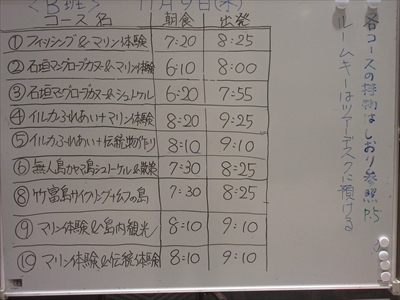 〈B班〉 11月9日(木)
コース名 朝食 出発
① フィッシング&マリン体験 7:20 8:25
② 石垣マングローブカヌー&マリン体験 6:10 8:00
③ 石垣マングローブカヌー&シュノーケル 6:20 7:55
④ イルカふれあい+マリン体験 8:20 9:25
⑤ イルカふれあい+伝統物作り 8:10 9:10
⑥ 無人島カヤマ島シュノーケル&散策 7:30 8:25
⑧ 竹富島サイクリング+由布の島 7:30 8:25
⑨ マリン体験&島内観光 8:10 9:10
⑩ マリン体験&伝統体験 8:10 9:10
各コースの持物はしおり参照 P.5
ルームキーはツアーデスクに預ける